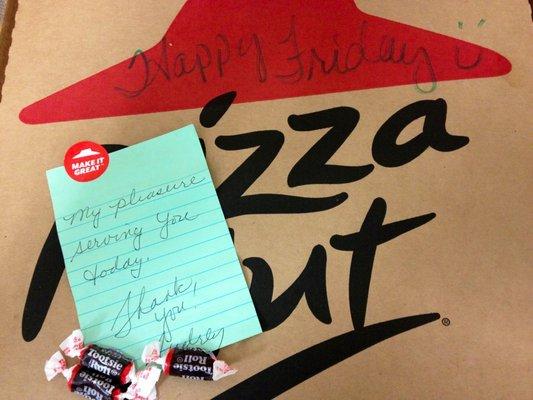 Happy Friday
Pizza
Hut
MAKE IT
GREAT
My pleasure
serving you
today.
Thank
you,
Audrey
Tootsie
Roll
Tootsie
Roll
Tootsie
Roll